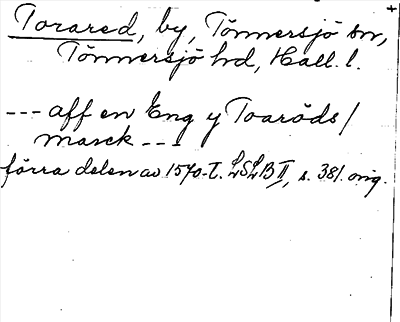 Torared, by, Tönnersjö sn,
Tönnersjö hd, Hall. l.
--- aff en Eng y Toaröds/
marck ---
förra delen av 1570-t. LSLB II, s. 381. orig.